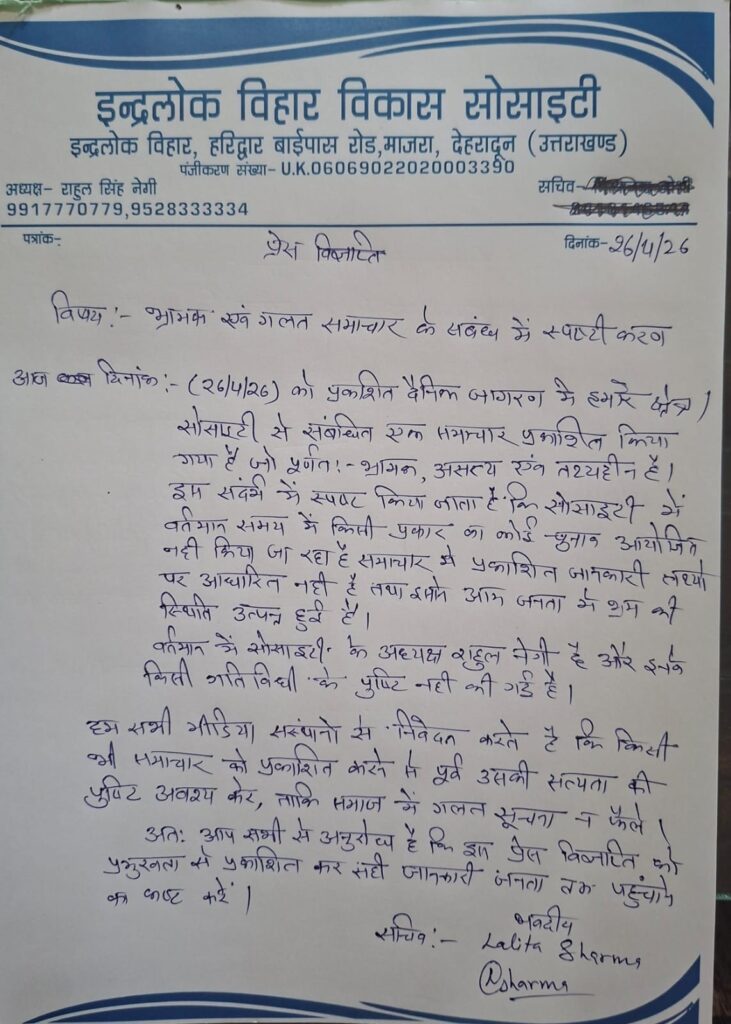 इन्द्रलोक विहार विकास सोसाइटी
इन्द्रलोक विहार, हरिद्वार बाईपास रोड,माजरा, देहरादून (उत्तराखण्ड)
पंजीकरण संख्या- U.K.06069022020003390
अध्यक्ष- राहुल सिंह नेगी
9917770779,9528333334
सचिव-
पत्रांक-
दिनांक-26/4/26
प्रेस विज्ञप्ति
विषय:- भ्रामक एवं गलत समाचार के सबंध में स्पष्टी करण
आज दिनांक:- (26/4/26) को प्रकाशित दैनिक जागरण मे हमारे क्षेत्र /
सोसाइटी से संबंधित एक समाचार प्रकाशित किया
गया है जो पूर्णत:- भ्रामक, असत्य एवं तथ्यहीन है।
इस संदर्भ में स्पष्ट किया जाता है कि सोसाइटी में
वर्तमान समय में किसी प्रकार का कोई चुनाव आयोजित
नही किया जा रहा है समाचार मे प्रकाशित जानकारी तथ्यो
पर आधारित नही है तथा इससे आम जनता मे भ्रम की
स्थिति उत्पन्न हुई है।
वर्तमान में सोसाइटी के अध्यक्ष राहुल नेगी है और इनके
किसी गतिविधी के पुष्टि नही की गई है।
हम सभी मीडिया संस्थानो से निवेदन करते है कि किसी
भी समाचार को प्रकाशित करने से पूर्व उसकी सत्यता की
पुष्टि अवश्य करे, ताकि समाज में गलत सूचना न फैले।
अत: आप सभी से अनुरोध है कि इस प्रेस विज्ञप्ति को
प्रमुखता से प्रकाशित कर सही जानकारी जनता तक पहुंचाने
का कष्ट करें।
भवदीय
सचिव:- Lalita Sharma
Lsharma